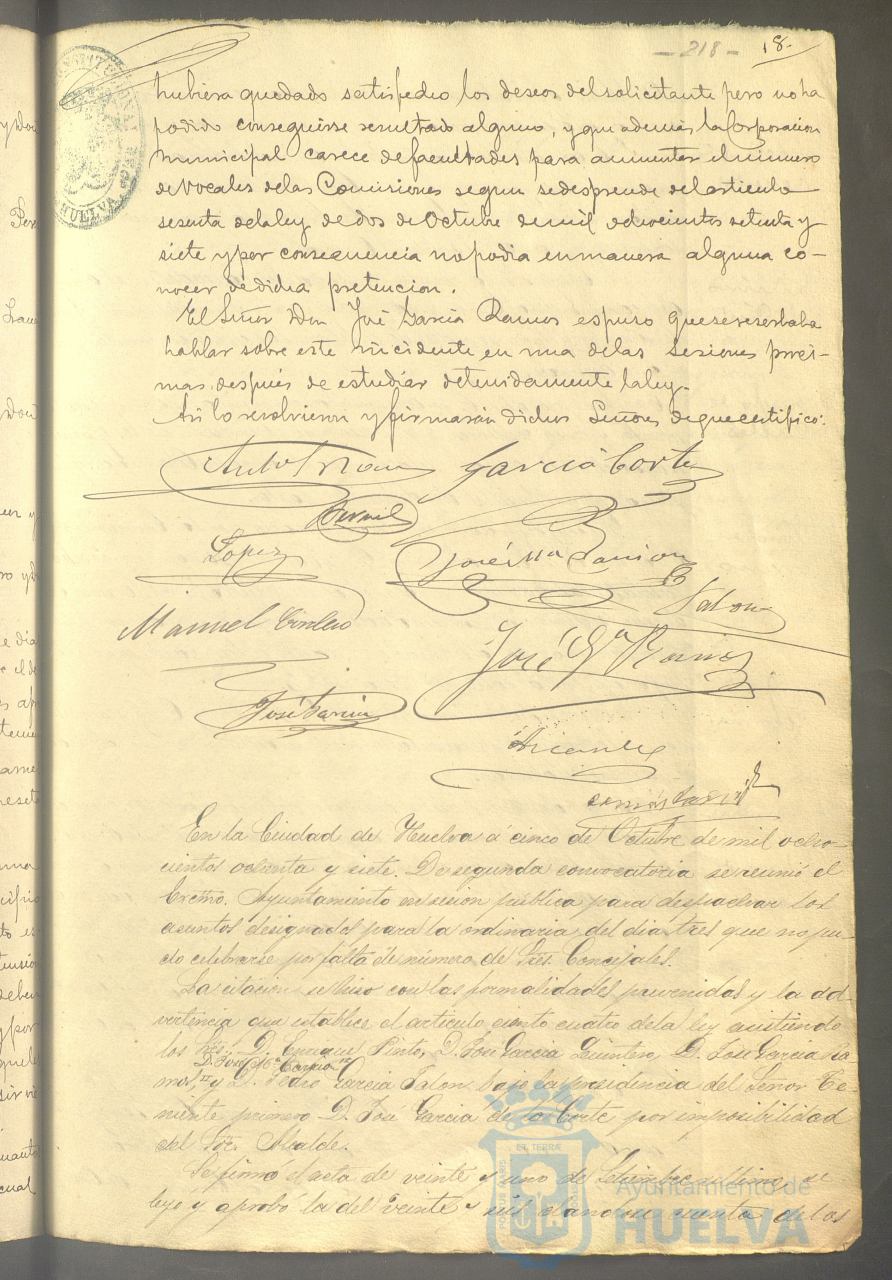 - 218 - 18.
hubiera quedado satisfecho los deseos del solicitante pero no ha
podido conseguirse resultado alguno, y que ademas la Corporacion
municipal carece de facultades para aumentar el numero
de Vocales de las Comisiones segun se desprende del articulo
sesenta de la ley de dos de Octubre de mil ochocientos setenta y
siete y por consecuencia no podia en manera alguna co-
nocer de dicha pretencion.
El Señor Don José Garcia Ramos espuso que se reserbaba
hablar sobre este incidente en una de las Sesiones proxi-
mas, después de estudiar detenidamente la ley.
Asi lo resolvieron y firmarán dichos Señores de que certifico.
Garcia Corte
Lopez
José Mª
Jalon
Manuel
José Gª Ramos
José Garcia
En la Ciudad de Huelva á cinco de Octubre de mil ocho-
cientos ochenta y siete. De segunda convocatoria se reunió el
Excmo. Ayuntamiento en sesion pública para despachar los
asuntos designados para la ordinaria del dia tres que no pu-
do celebrarse por falta de número de Sres. Concejales.
La citacion se hizo con las formalidades prevenidas y la ad-
vertencia que establece el artículo ciento cuatro de la ley asistiendo
los Sres. D. Enrique Pinto, D. José Garcia Quintero, D. José Garcia Ra-
D. José Mª
mos, y D. Pedro Garcia Jalon bajo la presidencia del Señor Te-
niente primero D. José Garcia de la Corte por imposibilidad
del Sor. Alcalde.
Se firmó el acta de veinte y uno de Setiembre último, se
leyó y aprobó la del veinte y seis, el de las
HUELVA
Ayuntamiento de
HUELVA